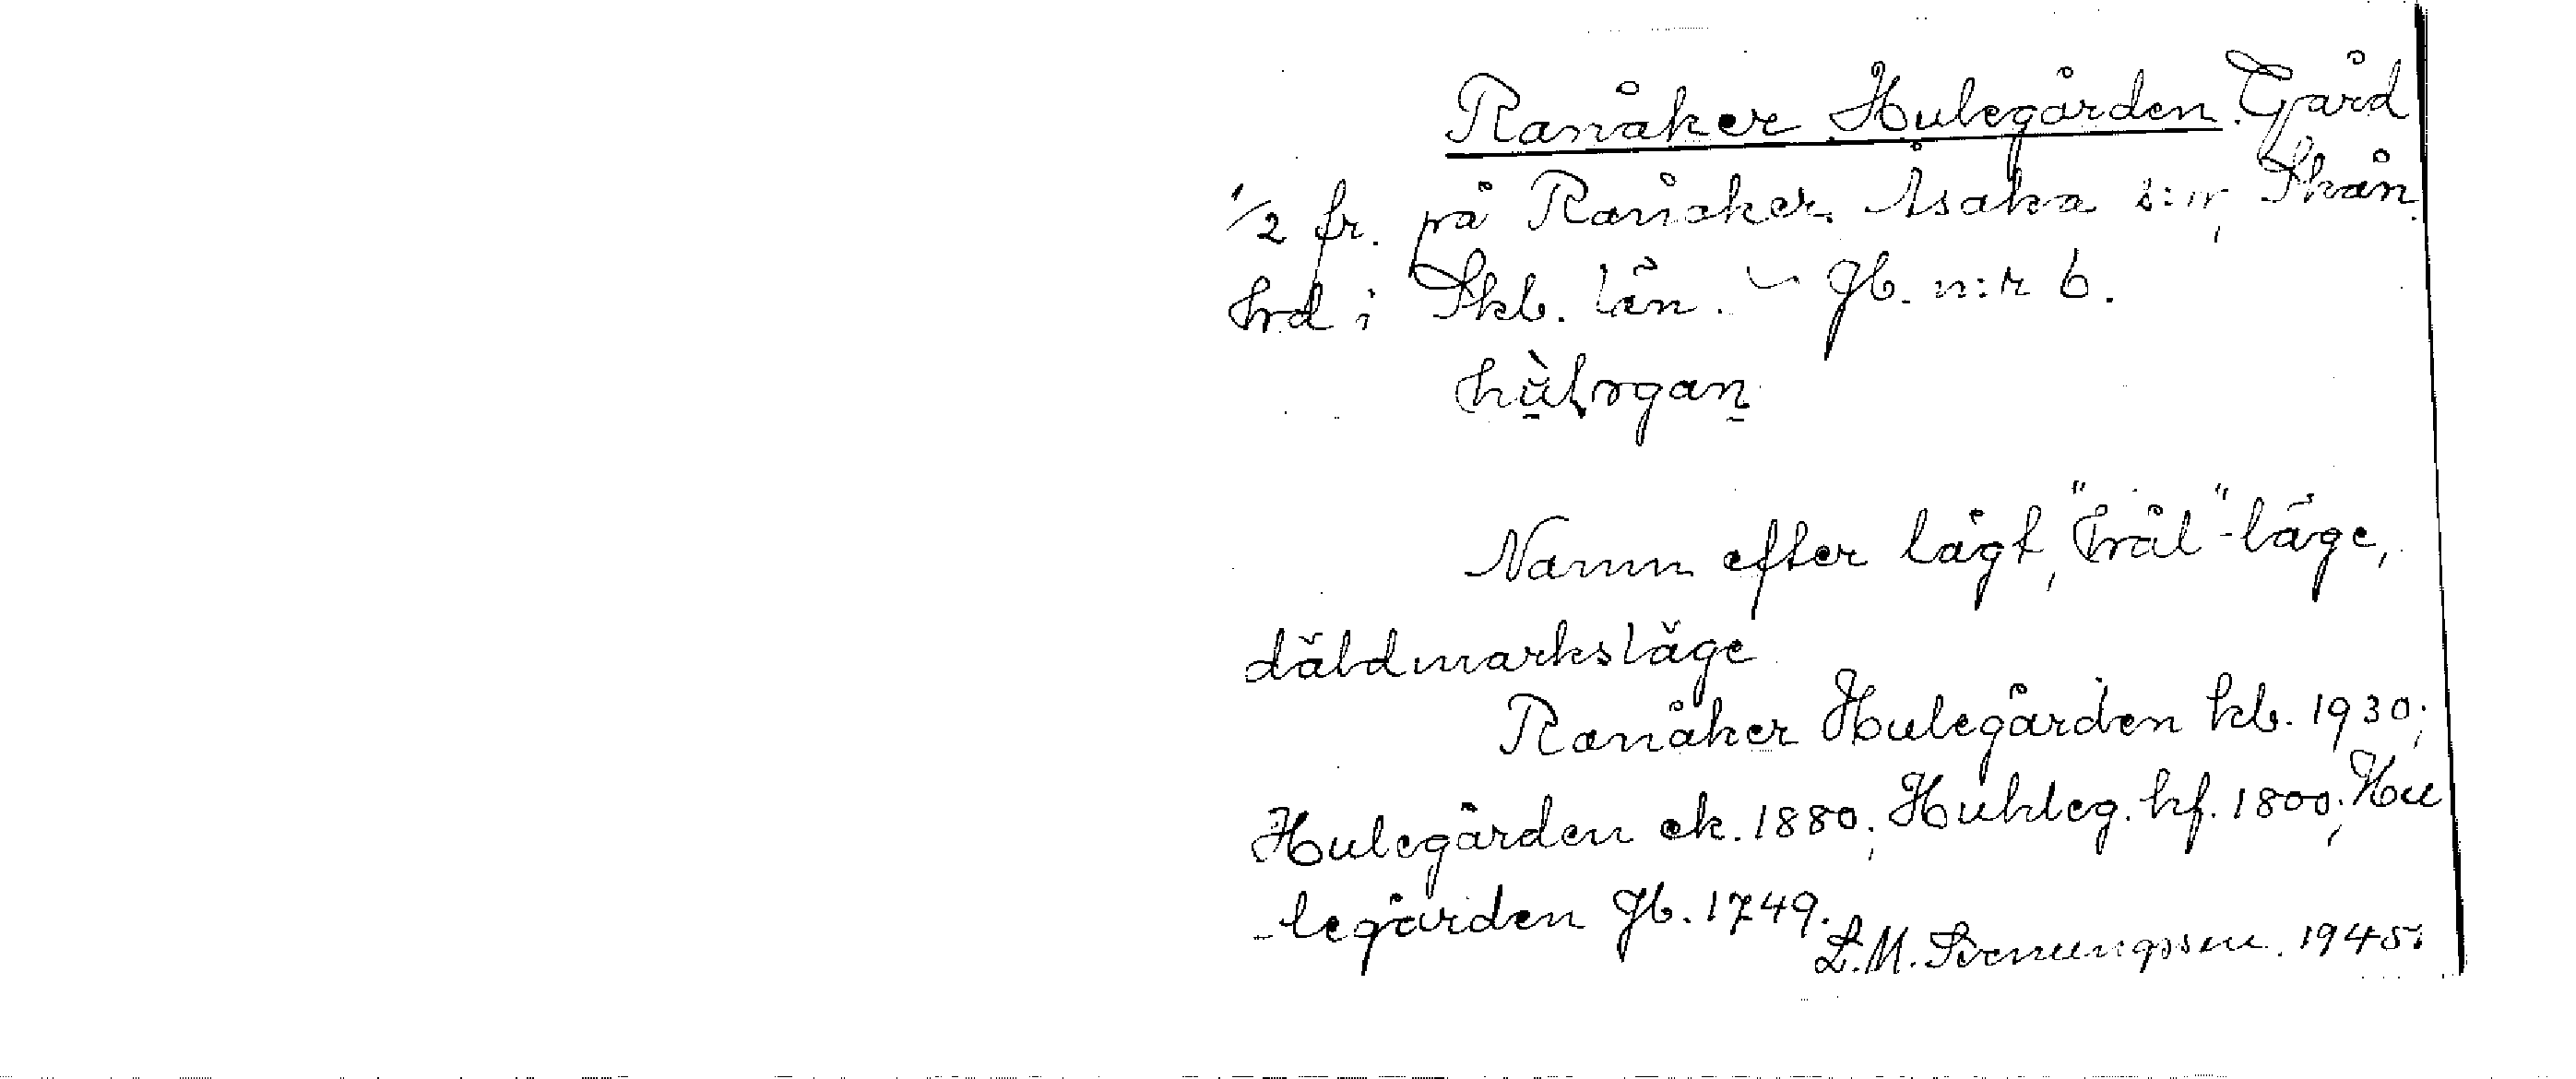 Ranåker Hulegården. Gård
1/2 fr. på Ranåker. Åsaka s:n, Skån.
hrd i Skb. län. ~ Jb. n:r 6.
Namn efter lågt, "hål"-läge,
däldmarksläge
Ranåker Hulegården kb. 1930;
Hulegården ek. 1880; Huhleg. hf. 1800; Hu
-legården Jb. 1749.
L.M. Svenungsson. 1945.